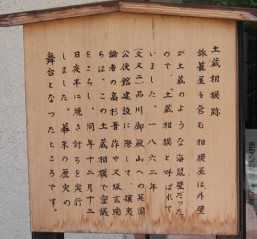 土蔵相模跡
旅籠屋を営む相模屋は外壁
が土蔵のような海鼠壁だった
ので、「土蔵相模」と呼ばれて
いました。一八六二年
(文久二)品川御殿山の英国
公使館建設に際して、攘夷
論者の高杉晋作や久坂玄瑞
らは、この土蔵相模で密議
をこらし、同年十二月十二
日夜半に焼き討ちを実行
しました。幕末の歴史の
舞台となったところです。